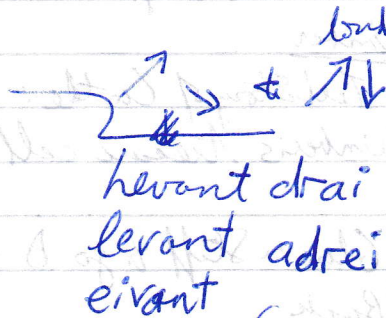 hevant drai
levant adrei
eivant